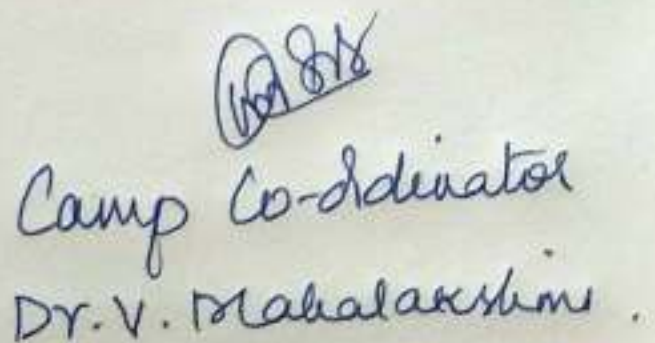 Camp Co-ordinator
Dr. V. Mahalakshmi.